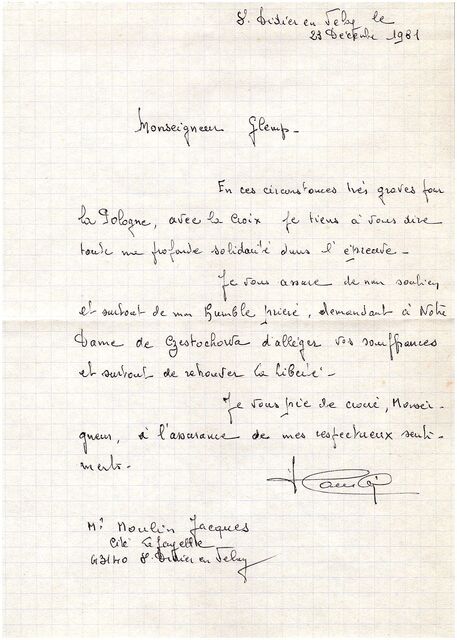 St Didier en Velay le
23 Décembre 1981
Monseigneur Glemp -
En ces circonstances très graves pour
la Pologne, avec la Croix je tiens à vous dire
toute ma profonde solidarité dans l'épreuve -
Je vous assure de mon soutien
et surtout de mon humble prière, demandant à Notre
Dame de Czestochowa d'alléger vos souffrances
et surtout de retrouver la liberté -
Je vous prie de croire, Monsei-
gneur, à l'assurance de mes respectueux senti-
ments -
Mr Moulin Jacques
Cité Lafayette
43140 St Didier en Velay